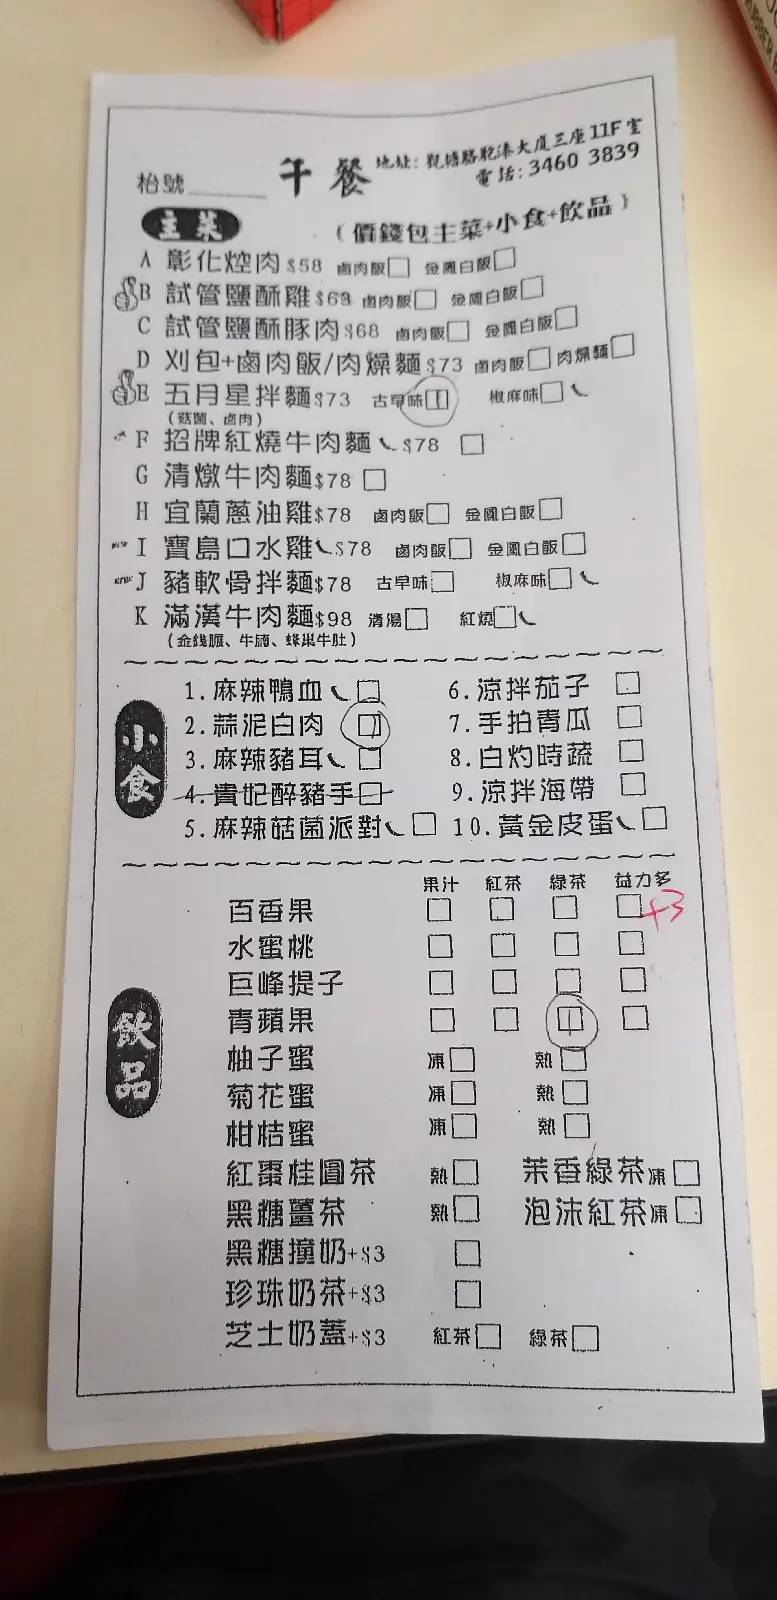 枱號______ 午餐 地址: 觀塘駱駝漆大廈三座11F室
電話: 3460 3839
主菜 (價錢包主菜+小食+飲品)
A 彰化焢肉$58 鹵肉飯□ 金鳳白飯□
B 試管鹽酥雞$63 鹵肉飯□ 金鳳白飯□
C 試管鹽酥豚肉$68 鹵肉飯□ 金鳳白飯□
D 刈包+鹵肉飯/肉燥麵$73 鹵肉飯□ 肉燥麵□
E 五月星拌麵$73 古早味□ 椒麻味□
(菇菌、鹵肉)
F 招牌紅燒牛肉麵 $78 □
G 清燉牛肉麵$78 □
H 宜蘭蔥油雞$78 鹵肉飯□ 金鳳白飯□
I 寶島口水雞 $78 鹵肉飯□ 金鳳白飯□
J 豬軟骨拌麵$78 古早味□ 椒麻味□
K 滿漢牛肉麵$98 清湯□ 紅燒□
(金錢𦟌、牛腩、蜂巢牛肚)
小食
1. 麻辣鴨血 □ 6. 涼拌茄子 □
2. 蒜泥白肉 □ 7. 手拍青瓜 □
3. 麻辣豬耳 □ 8. 白灼時蔬 □
4. 貴妃醉豬手□ 9. 涼拌海帶 □
5. 麻辣菇菌派對 □ 10. 黃金皮蛋 □
飲品
果汁 紅茶 綠茶 益力多
百香果 □ □ □ □ +3
水蜜桃 □ □ □ □
巨峰提子 □ □ □ □
青蘋果 □ □ □ □
柚子蜜 凍□ 熱□
菊花蜜 凍□ 熱□
柑桔蜜 凍□ 熱□
紅棗桂圓茶 熱□ 茉香綠茶凍□
黑糖薑茶 熱□ 泡沫紅茶凍□
黑糖撞奶+$3 □
珍珠奶茶+$3 □
芝士奶蓋+$3 紅茶□ 綠茶□